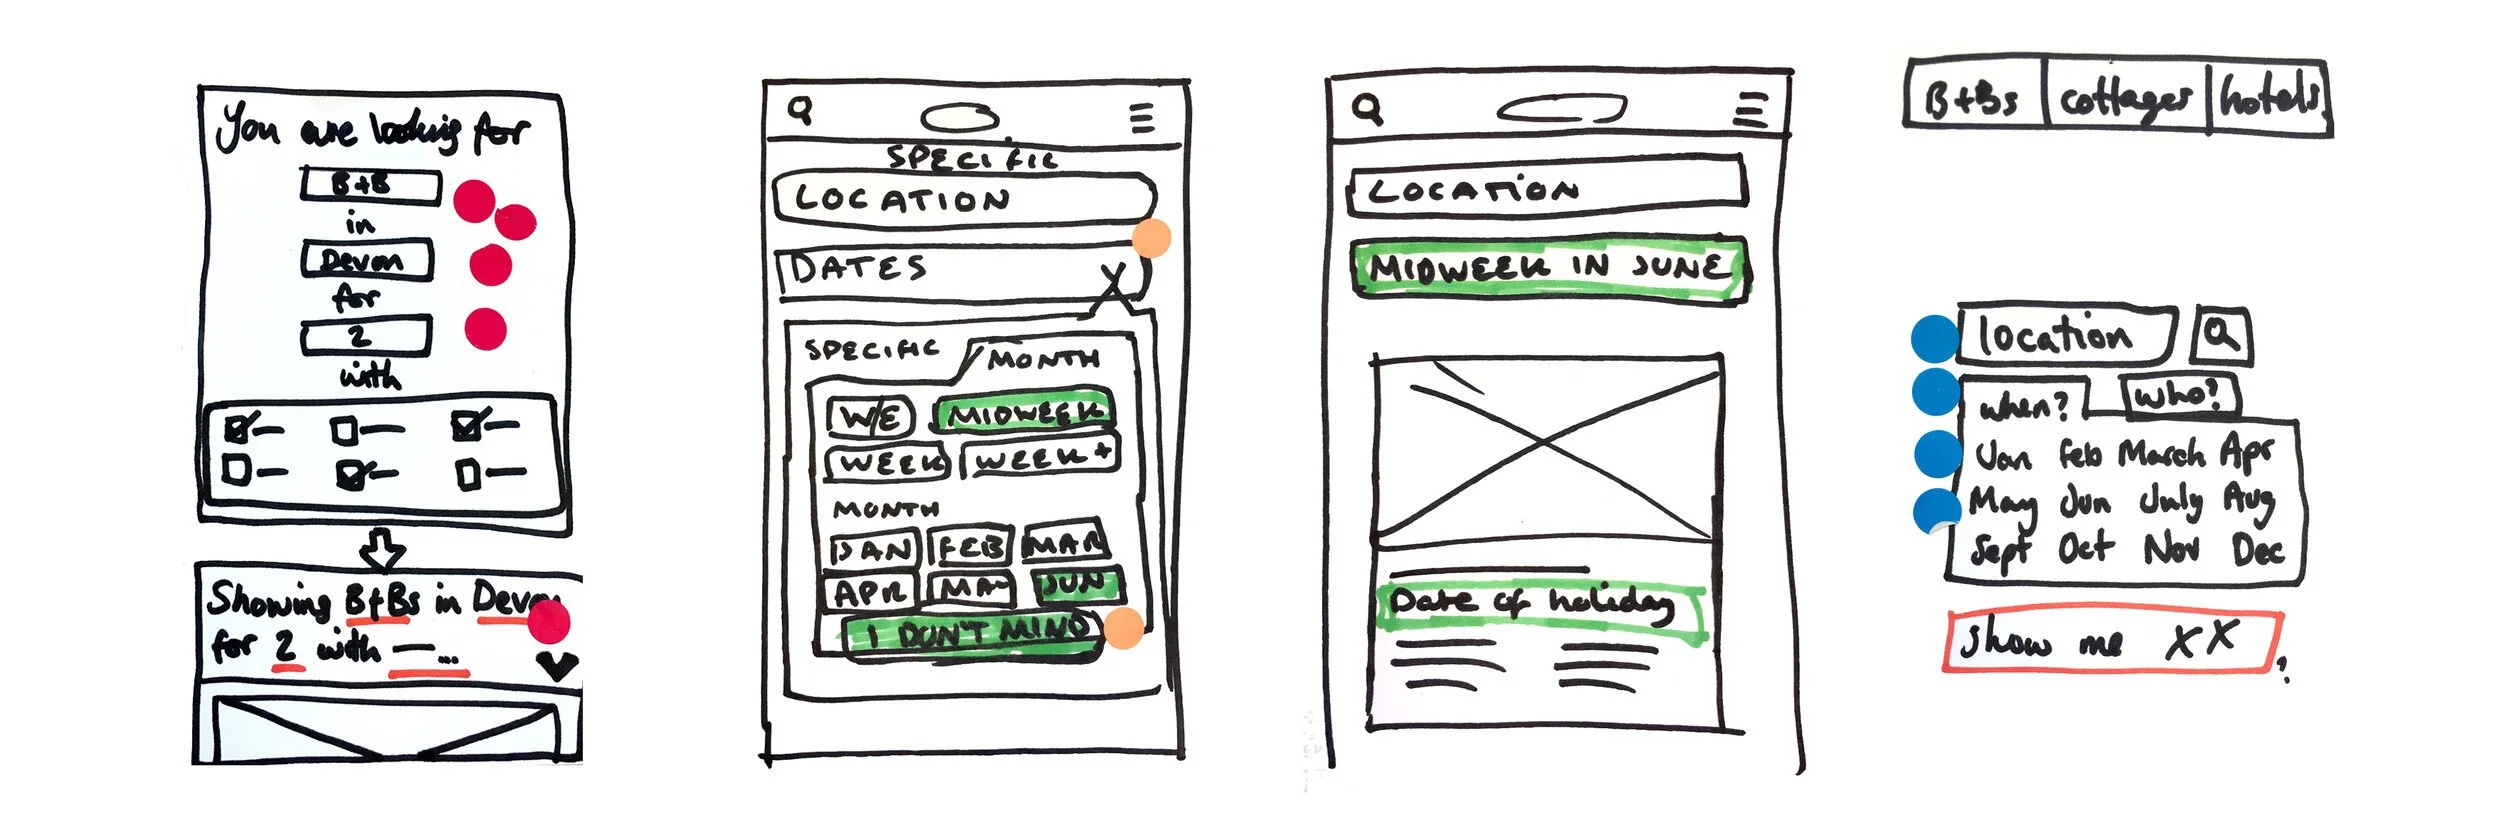 You are looking for
B+B
in
Devon
for
2
with
Showing B+Bs in Devon
for 2 with —...
SPECIFIC
LOCATION
DATES X
SPECIFIC MONTH
W/E MIDWEEK
WEEK WEEK+
MONTH
JAN FEB MAR
APR MAY JUN
I DON'T MIND
LOCATION
MIDWEEK IN JUNE
Date of holiday
B+Bs cottages hotels
location
when? who?
Jan Feb March Apr
May Jun July Aug
Sept Oct Nov Dec
Show me XX
?